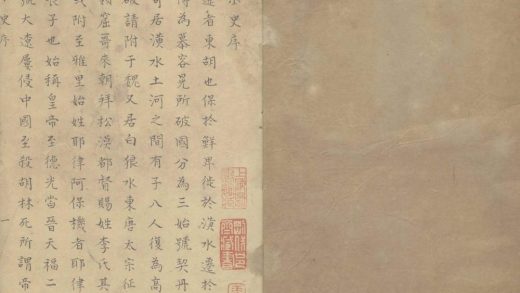 小史序
遼者東胡也保於鮮卑徙於潢水遷於
為慕容晃所破國分為三始號契丹
奇居潢水土河之間有子八人復為高
破請附于魏又居白狼水東唐太宗征
窟哥來朝拜松漠都督賜姓李氏其
附至雅里始姓耶律阿保機者耶律
子也始稱皇帝至德光當晉天福二
號大遼屢侵中國至殺胡林死所謂帝
史序 一